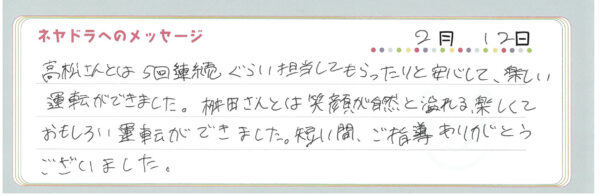 ネヤドラへのメッセージ 2月 12日
高松さんとは5回連続ぐらい担当してもらったりと安心して、楽しい
運転ができました。桝田さんとは笑顔が自然と溢れる楽しくて
おもしろい運転ができました。短い間、ご指導ありがとう
ございました。